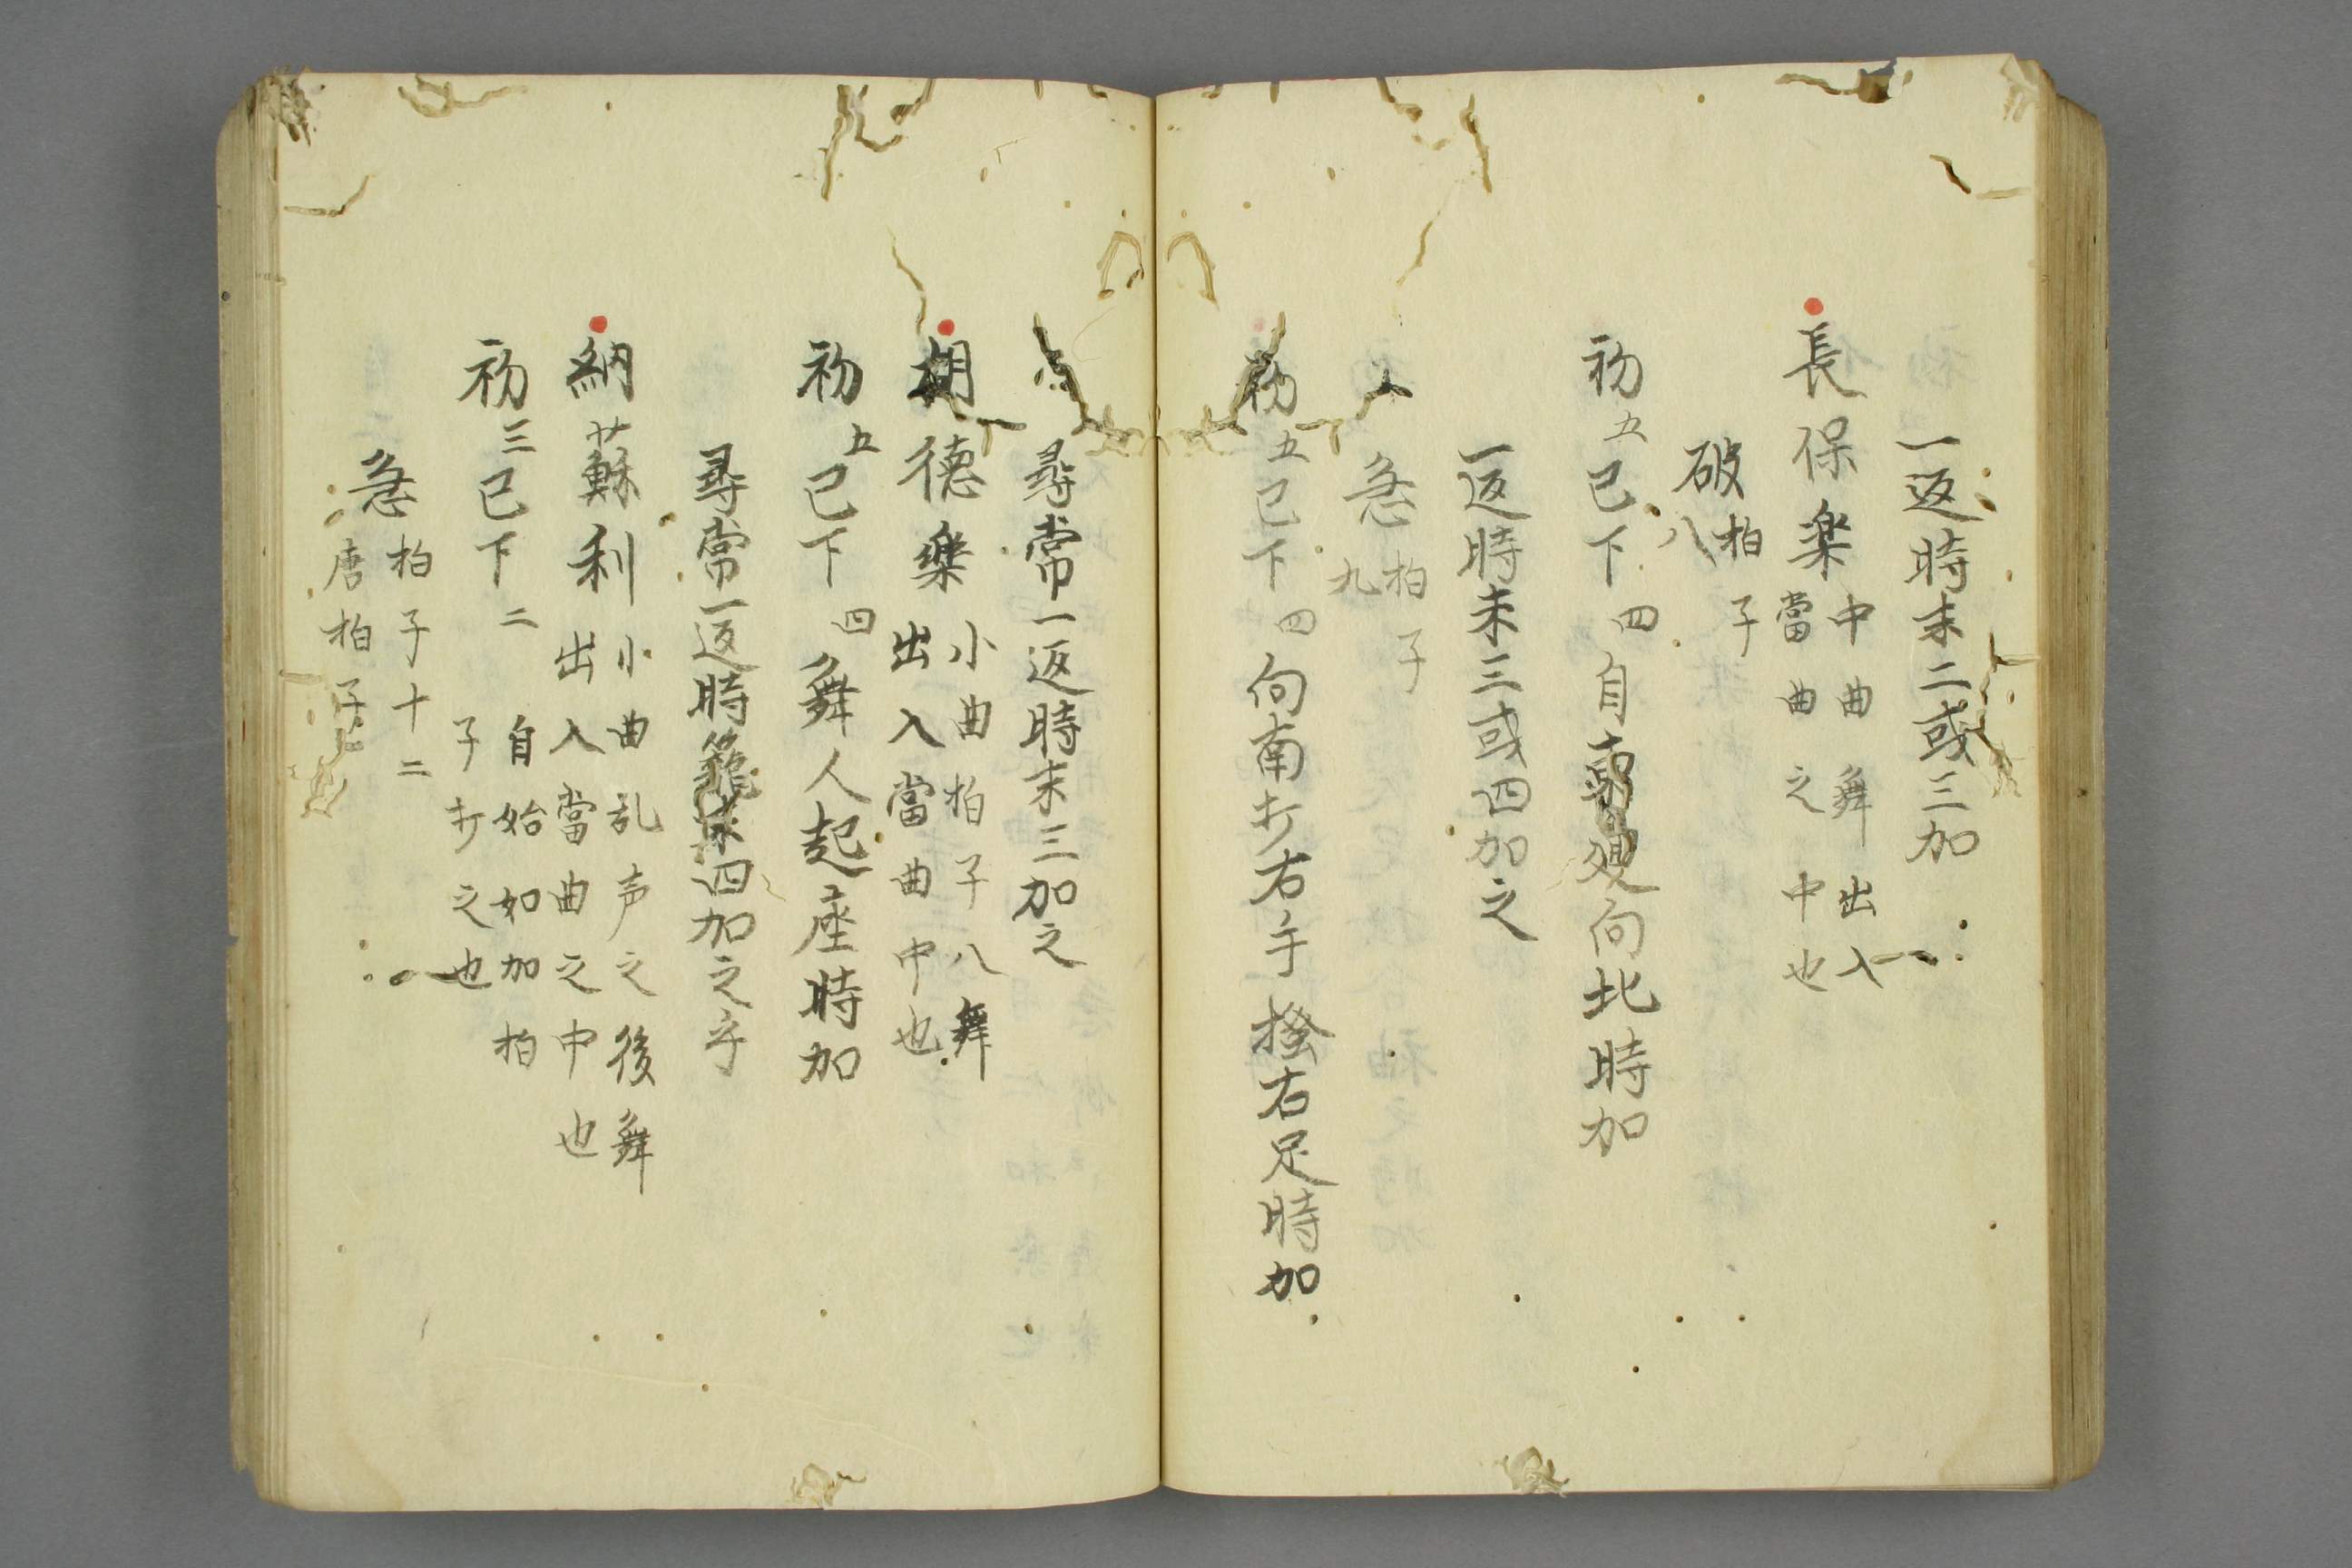 一返時末二或三加
長保楽 中曲舞出入
當曲之中也
破 拍子
八
初五已下四自 向北時加
一返時末三或四加之
急 拍子
九
初五已下四向南打右手掻右足時加
尋常一返時末三加之
胡德樂 小曲拍子八舞
出入當曲中也
初五已下四舞人起座時加
尋常一返時 四加之乎
納蘇利 小曲乱声之後舞
出入當曲之中也
初三已下二 自始如加拍
子打之也
急 拍子十二
唐拍子